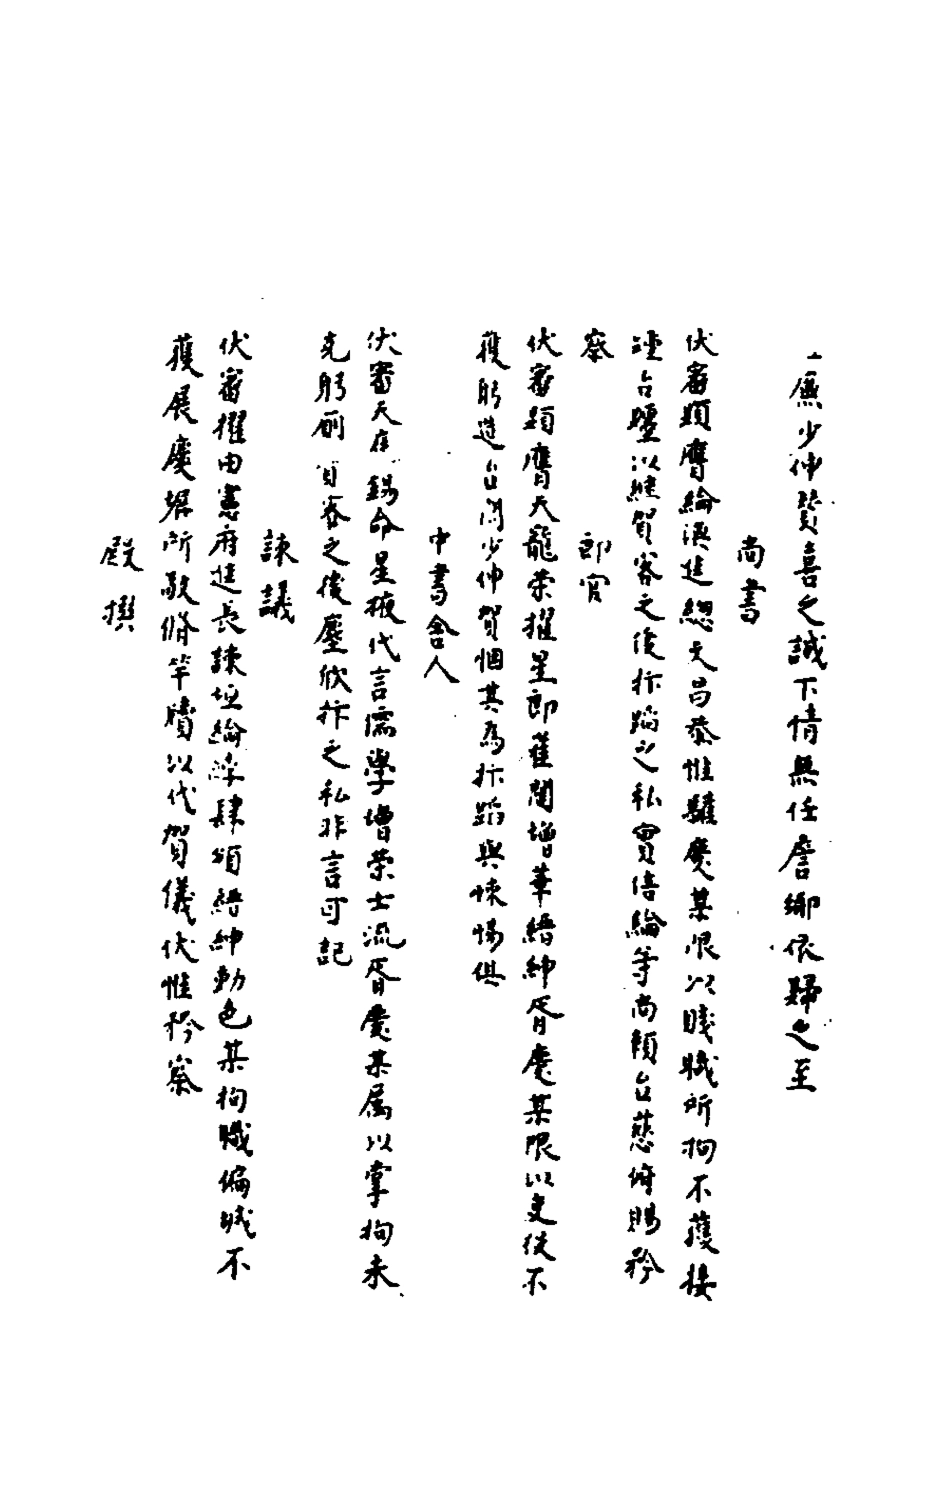 廡少伸贊喜之誠下情無任詹鄉依歸之至
尚書
伏審顯膺綸渙進總文昌恭惟驩慶某限以賤職所拘不獲接
踵台躔以繼賀客之後抃蹈之私實倍綸等尚頼台慈俯賜矜
察
郎官
伏審顯膺天寵榮擢星郎雀閣增華縉紳胥慶某限以吏役不
獲躬造台閎少伸賀悃其為抃蹈與悚惕俱
中書舍人
伏審天庭錫命星掖代言儒學增榮士流胥慶某属以掌拘未
克躬廁賀客之後塵欣抃之私非言可記
諫議
伏審擢由憲府進長諫垣綸綍肆頒縉紳動色某拘職偏城不
獲展慶墀所敢脩竿牘以代賀儀伏惟矜察
殿撰